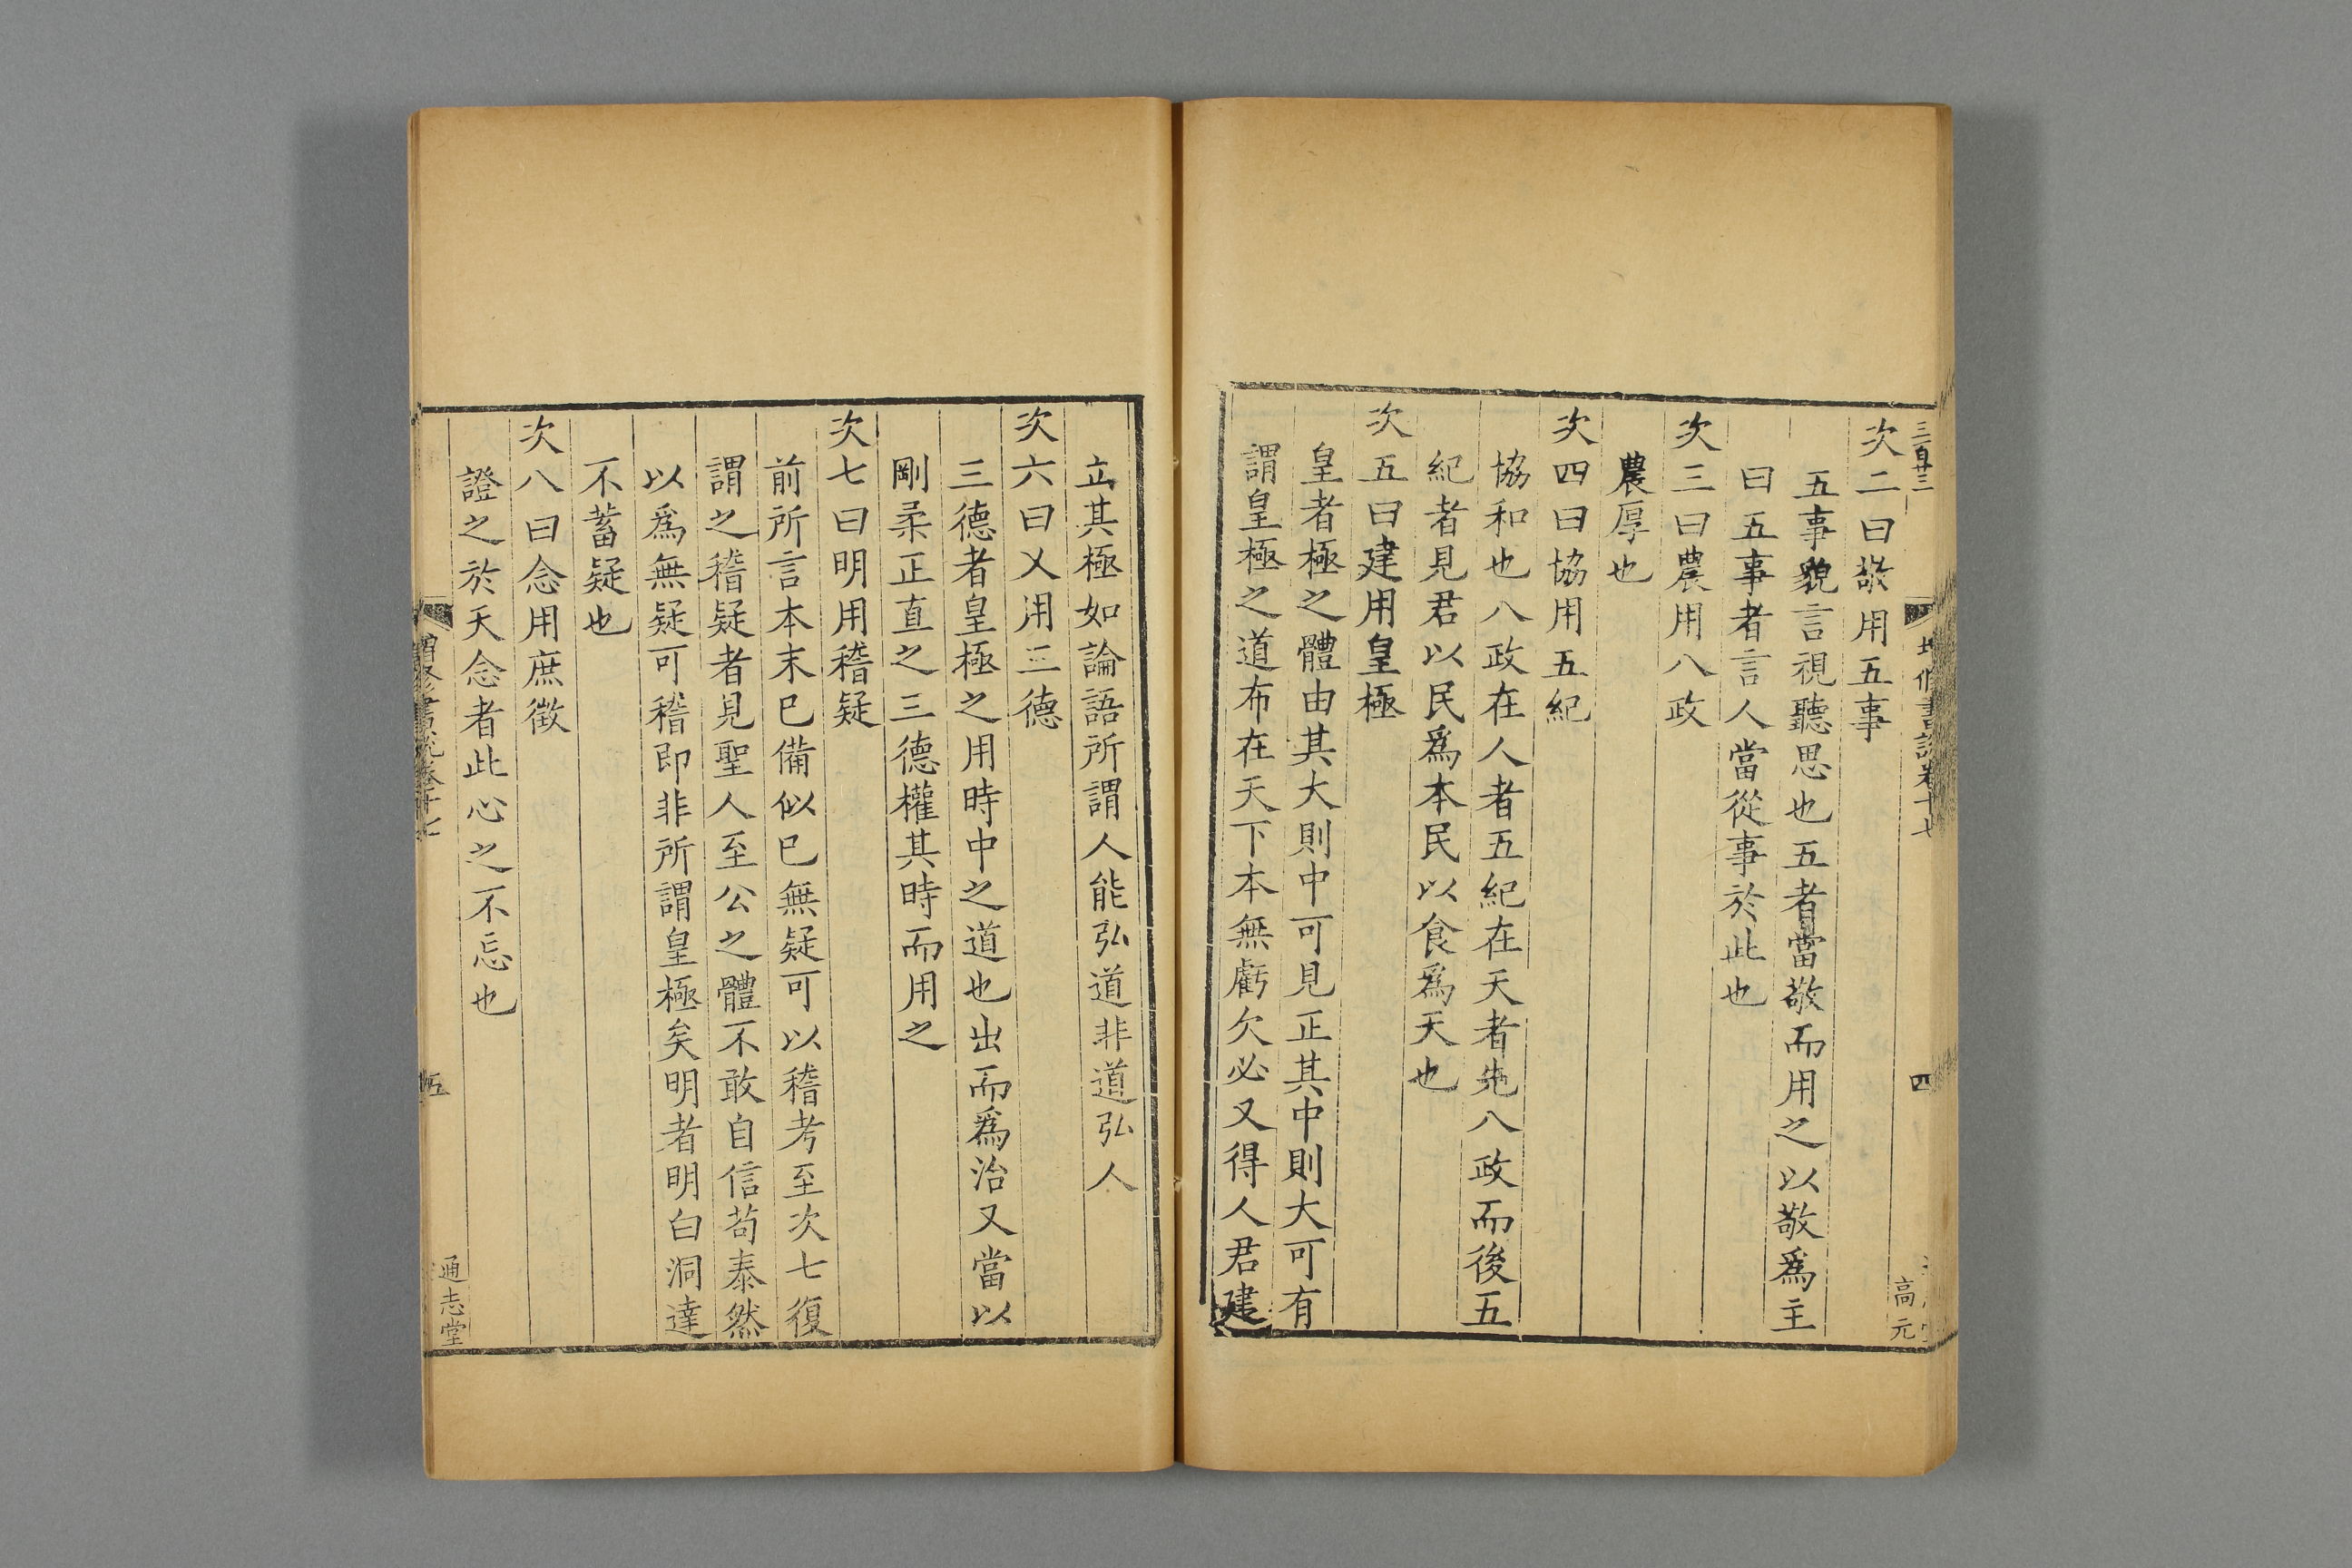 三百廿三
次二曰敬用五事
五事貌言視聽思也五者當敬而用之以敬爲主
曰五事者言人當從事於此也
次三曰農用八政
農厚也
次四曰協用五紀
協和也八政在人者五紀在天者先八政而後五
紀者見君以民爲本民以食爲天也
次五曰建用皇極
皇者極之體由其大則中可見正其中則大可有
謂皇極之道布在天下本無虧欠必又得人君建
四
高元
立其極如論語所謂人能弘道非道弘人
次六曰乂用三德
三德者皇極之用時中之道也出而爲治又當以
剛柔正直之三德權其時而用之
次七曰明用稽疑
前所言本末已備似已無疑可以稽考至次七復
謂之稽疑者見聖人至公之體不敢自信苟泰然
以爲無疑可稽即非所謂皇極矣明者明白洞達
不蓄疑也
次八曰念用庶徵
證之於天念者此心之不忘也
五
通志堂